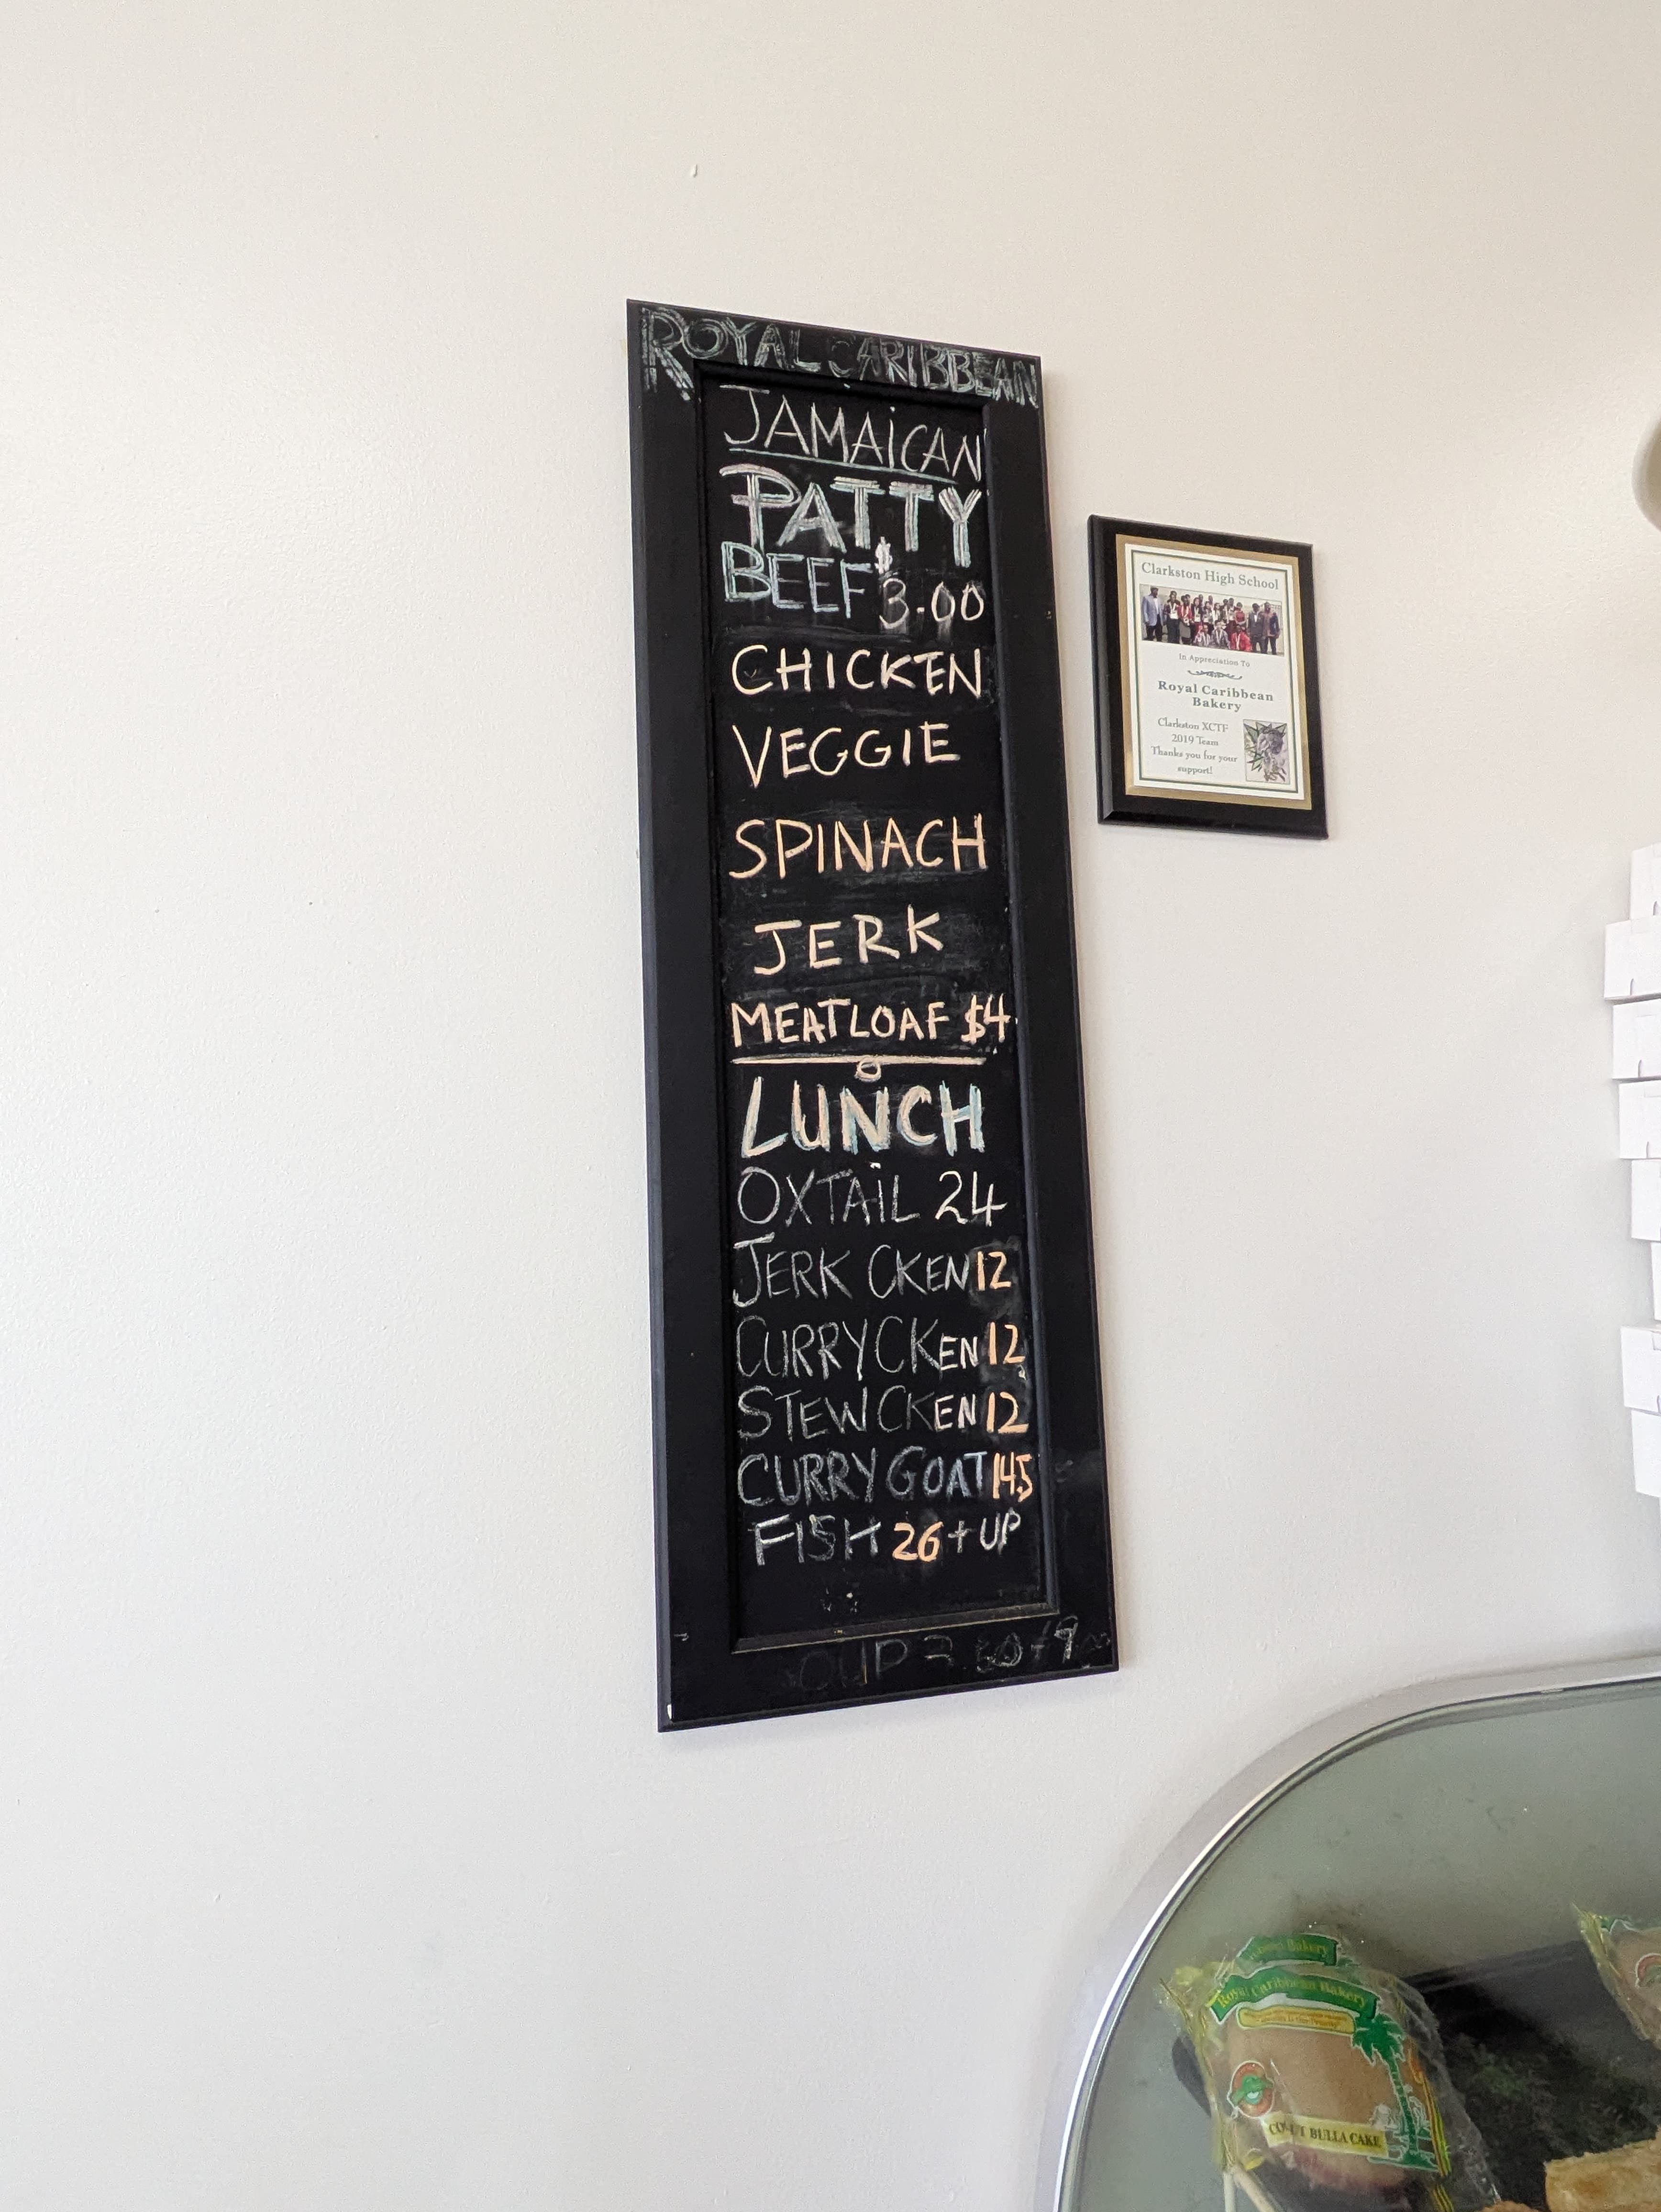 ROYAL CARIBBEAN
JAMAiCAN
PATTY
BEEF $3.00
CHICKEN
VEGGIE
SPINACH
JERK
MEATLOAF $4
LUNCH
OXTAiL 24
JERK CKEN 12
CURRY CKEN 12
STEW CKEN 12
CURRY GOAT 14.5
FISH 26 + UP
Clarkston High School
In Appreciation To
Royal Caribbean
Bakery
Clarkston XCTF
2019 Team
Thanks you for your
support!
Bakery
Royal Caribbean Bakery
BULLA CAKE